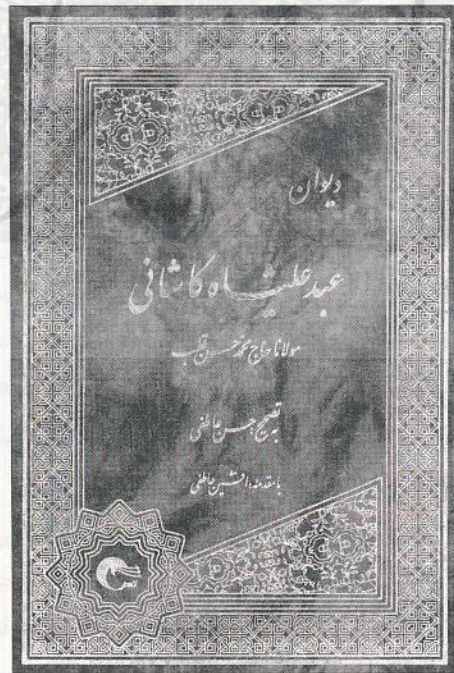 دیوان
عبدعلیشاه کاشانی
مولانا حاج محمد حسن قطب
به تصحیح حسن عاطفی
با مقدمه افشین عاطفی